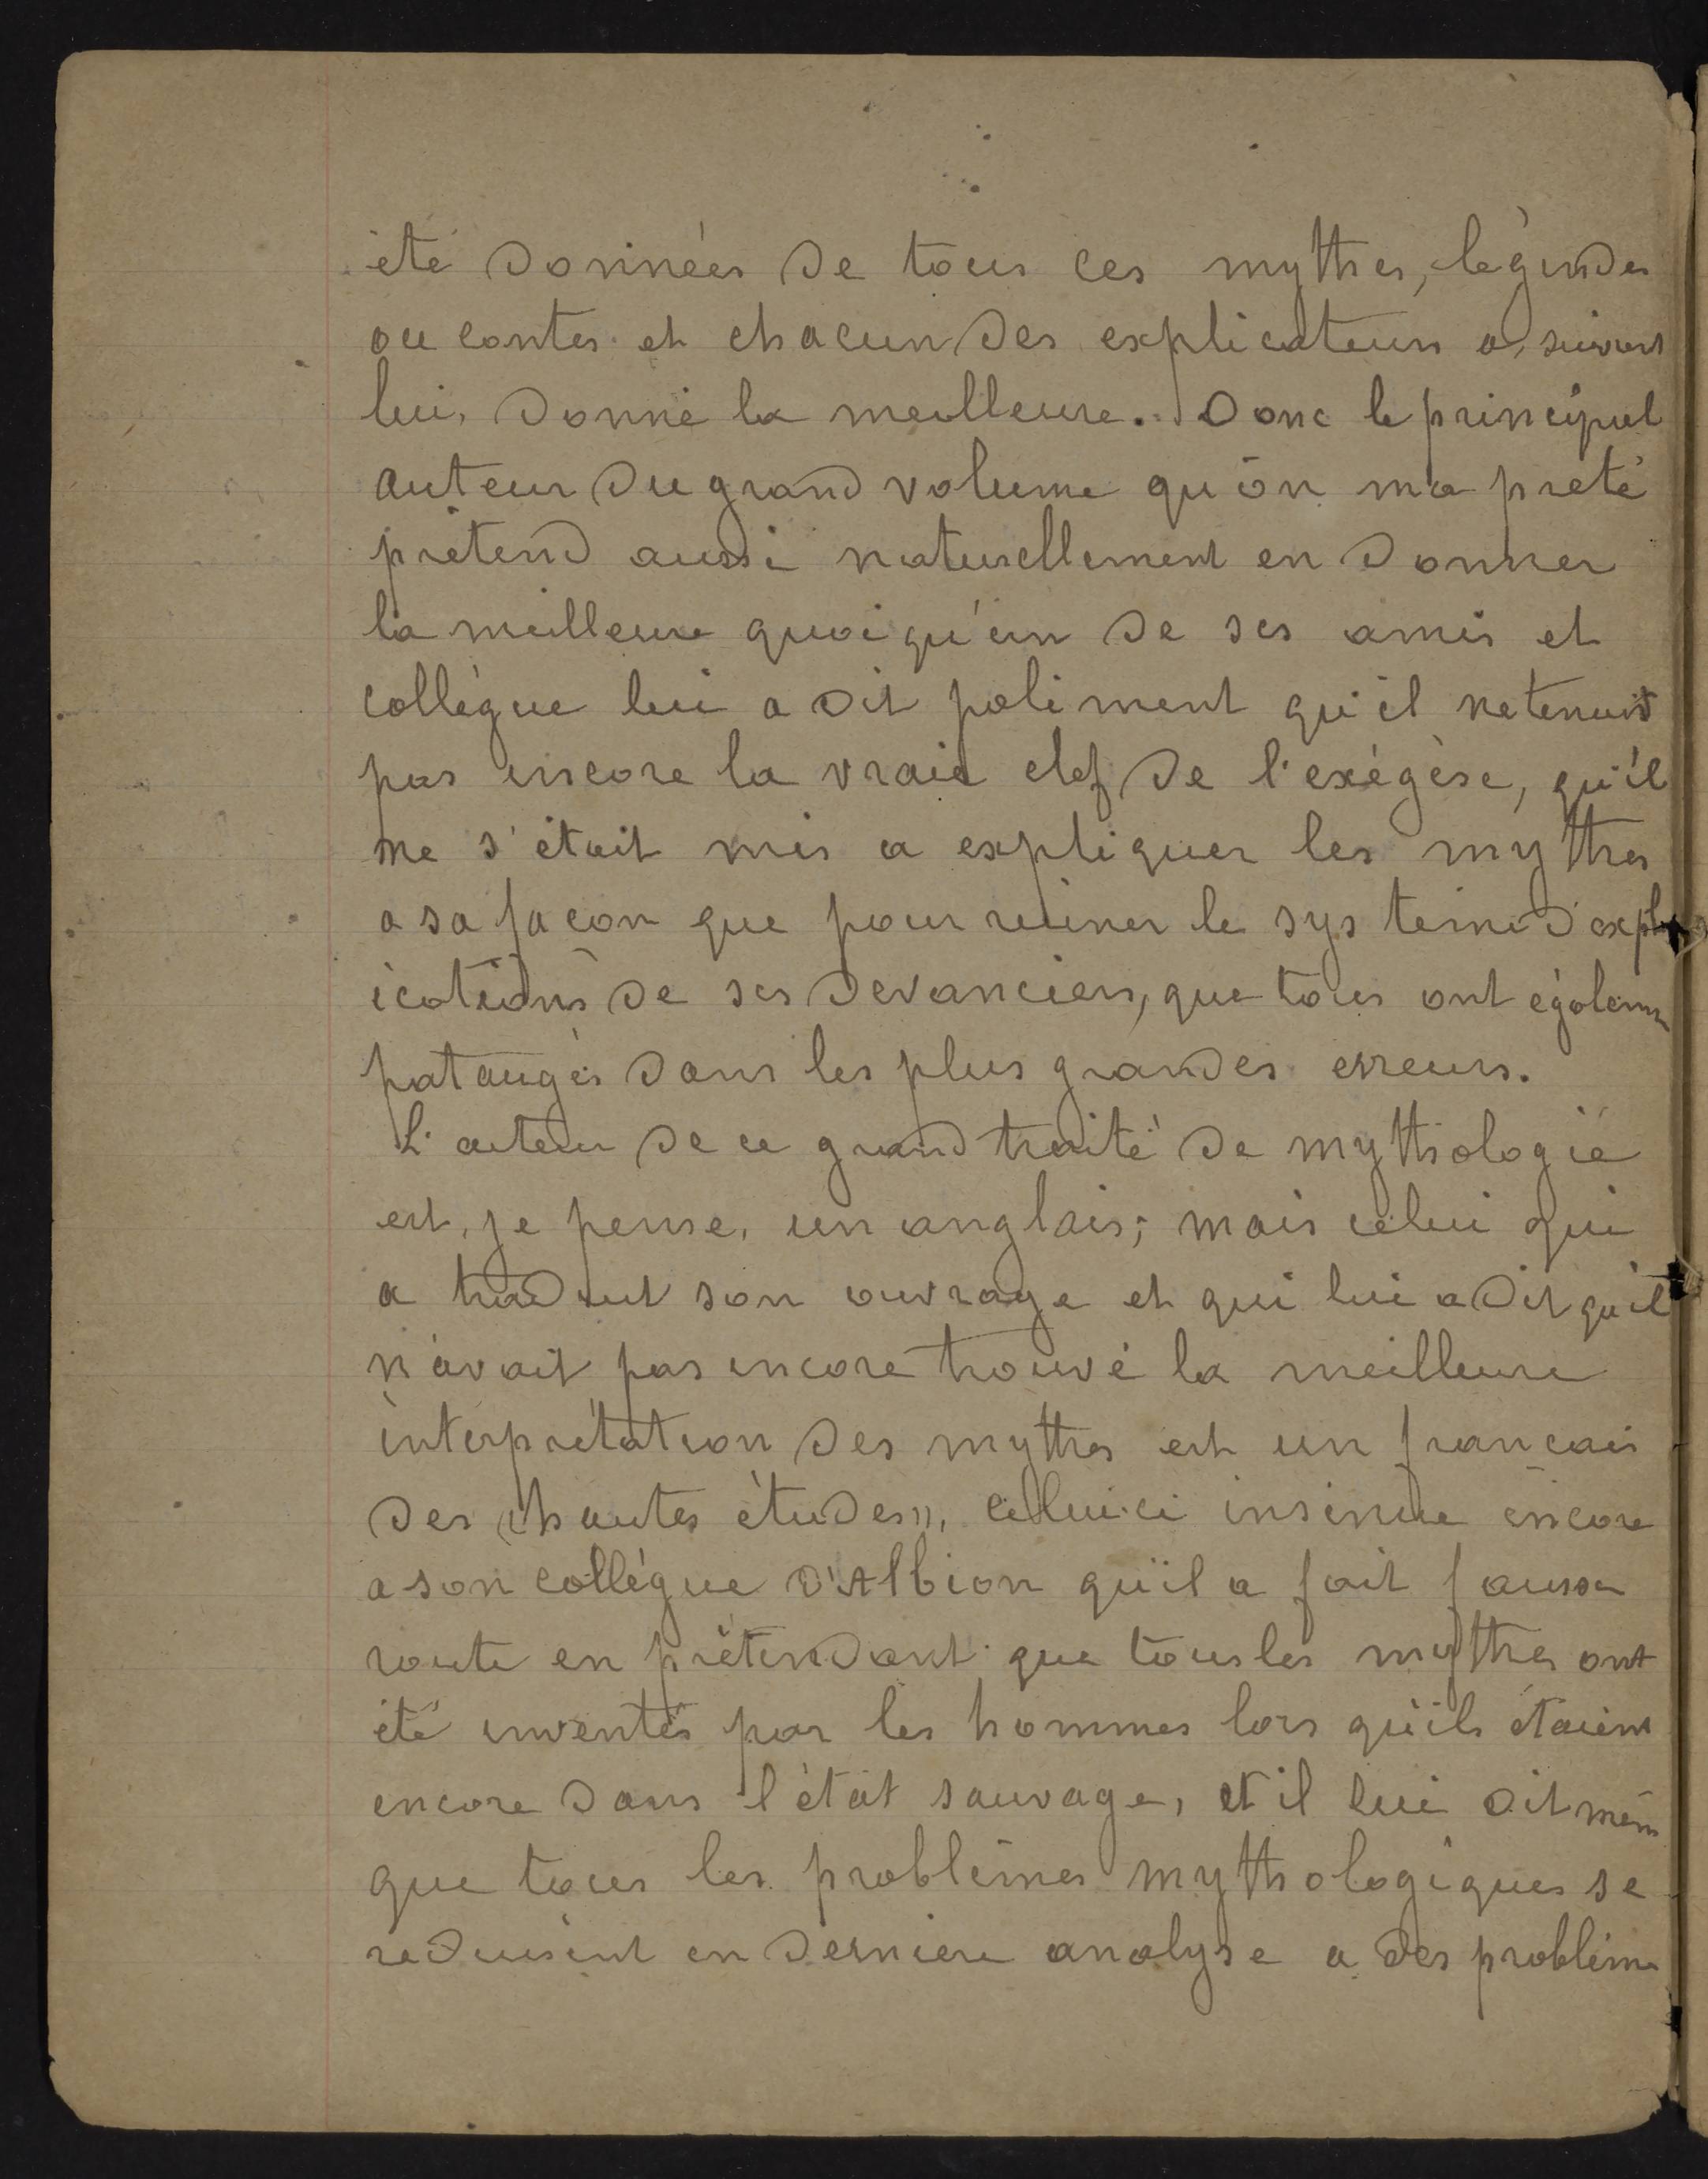 été données de tous ces mythes, légendes
ou contes et chacun des explicateurs a, suivant
lui, donné la meilleure. Donc le principal
auteur du grand volume qu'on m'a preté
prétend aussi naturellement en donner
la meilleure quoiqu'un de ses amis et
collègue lui a dit poliment qu'il ne tenait
pas encore la vraie clef de l'exégèse, qu'il
ne s'était mis a expliquer les mythes
a sa facon que pour ruiner le systeme d'expl
ications de ses devanciers, que tous ont égalem
pataugés dans les plus grandes erreurs.
L'auteur de ce grand traité de mythologie
est, je pense, un anglais; mais celui qui
a traduit son ouvrage et qui lui a dit qu'il
n'avait pas encore trouvé la meilleure
interprétation des mythes est un francais
des «hautes études», celui-ci insinue encore
a son collègue d'Albion qu'il a fait fausse
route en prétendant que tous les mythes ont
été inventés par les hommes lors qu'ils étaient
encore dans l'état sauvage, et il lui dit mêm
que tous les problèmes mythologiques se
reduisent en derniere analyse a des problème